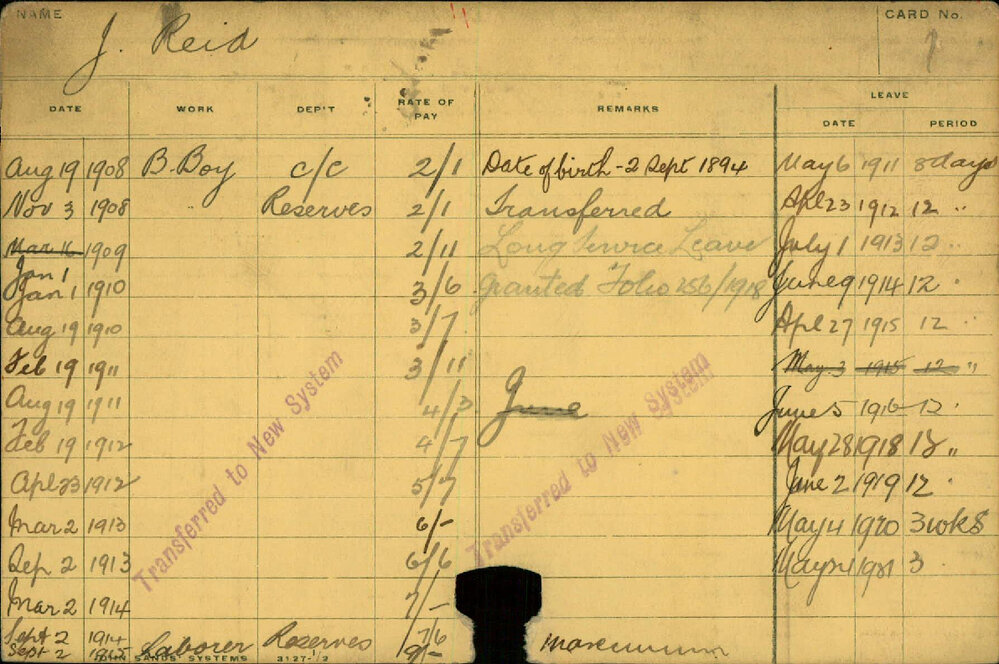 NAME
J. Reid
CARD No.
1
DATE WORK DEP'T RATE OF PAY REMARKS LEAVE
DATE PERIOD
Aug 19 1908 B. Boy c/c 2/1 Date of birth - 2 Sept 1894 May 6 1911 8 days
Nov 3 1908 Reserves 2/1 Transferred Apl 23 1912 12 "
Mar 16 1909 2/11 Long Service Leave July 1 1913 12 "
Jan 1
Jan 1 1910 3/6 granted Folio 256/1918 June 9 1914 12 "
Aug 19 1910 3/7 Apl 27 1915 12 "
Feb 19 1911 3/11 May 3 1915 12 "
Aug 19 1911 4/3 June June 5 1916 12 "
Feb 19 1912 4/7 May 28 1918 12 "
Apl 23 1912 5/7 June 2 1919 12 "
Mar 2 1913 6/- May 4 1920 3 wks
Sep 2 1913 6/6 May 1921 3
Mar 2 1914 7/-
Sept 2 1914 7/6
Sept 2 1915 Laborer Reserves 9/- maximum
Transferred to New System
Transferred to New System
JOHN SANDS' SYSTEMS 3127-1/2